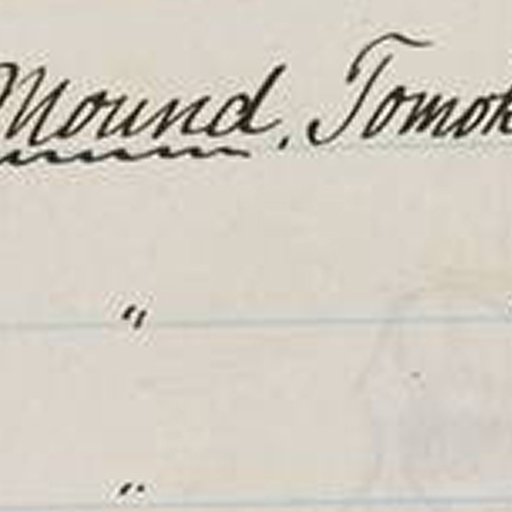 Mound. Tomok
"
"